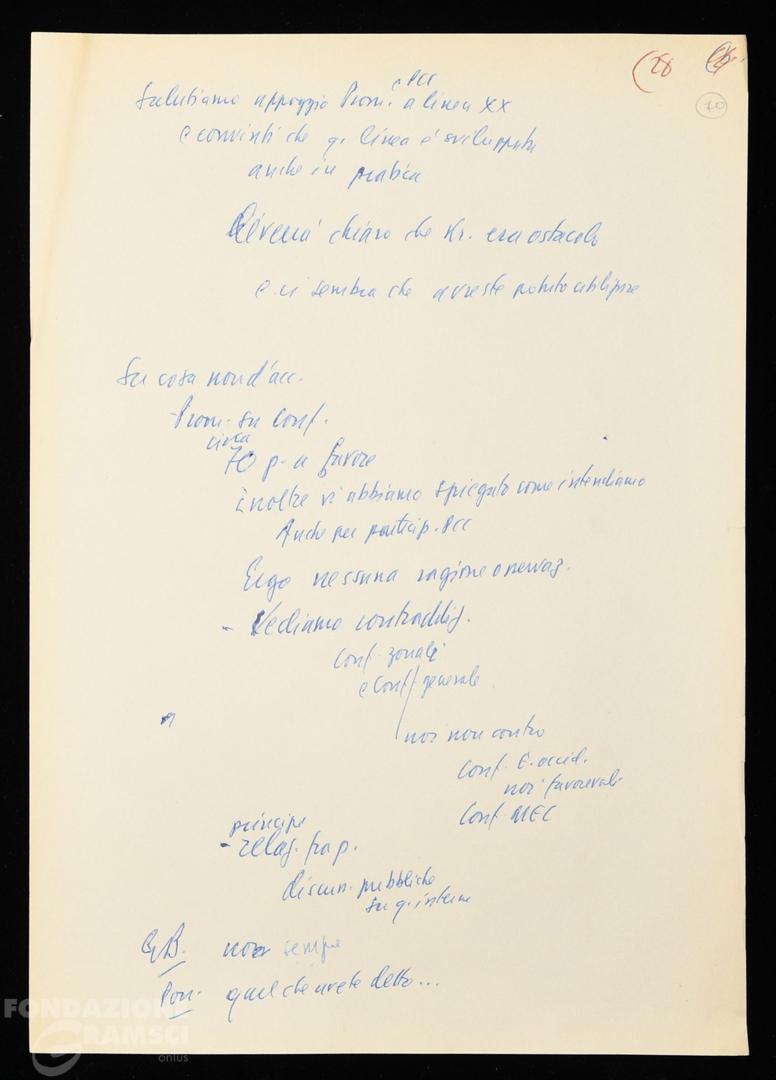 (28
70
e PCC
Salutiamo appoggio Prom. a linea XX
e convinti che q. linea è sviluppata
anche in pratica
chiaro che Kr. era ostacolo
e ci sembra che avreste potuto utilizzare
Su cosa non d'acc.
- Prom. su conf.
circa
70 p. a favore
inoltre vi abbiamo spiegato come intendiamo
Anche per particip. PCC
Ergo nessuna ragione
- Vediamo contraddiz.
conf. zonali
e conf. generale
noi non contro
conf. E. occid.
noi favorevoli
Conf MEC
principi
- relaz. fra p.
discuss. pubbliche
su q. interne
non sempre
Pon. quel che avete detto...
FONDAZIONE
GRAMSCI
onlus